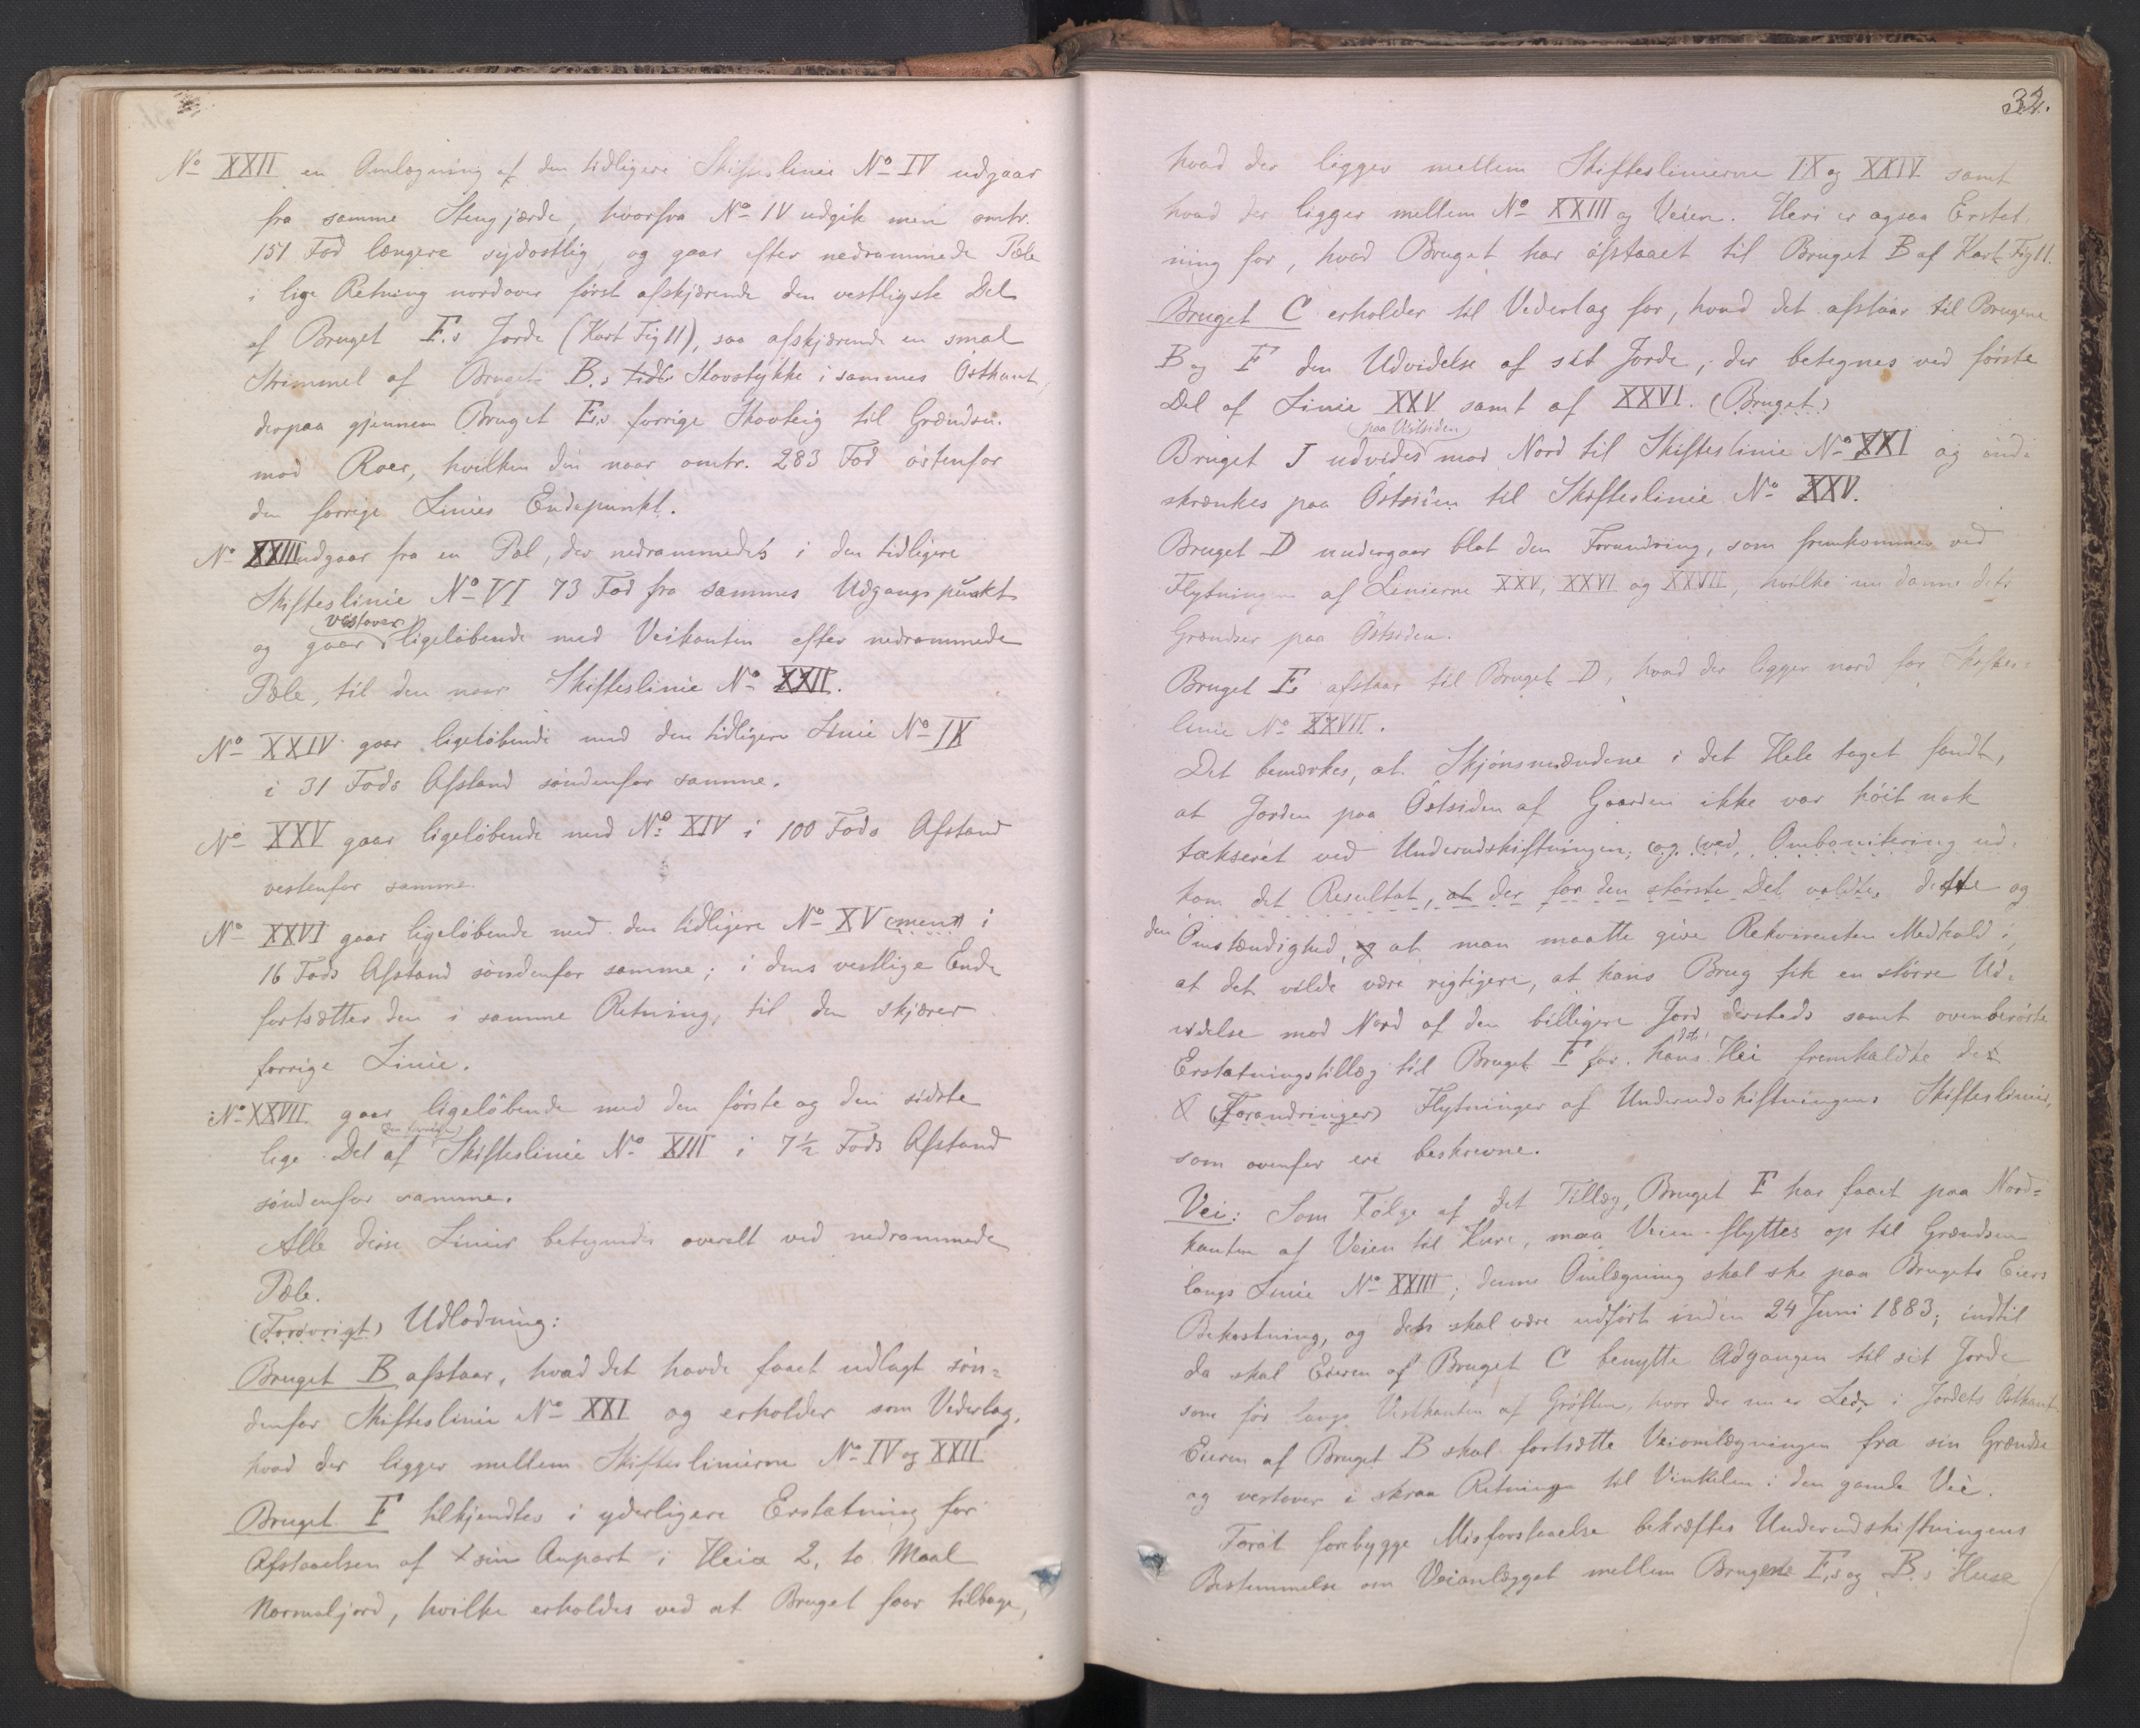 No XXII en Omlægning af den tidligere Skifteslinie No IV udgaar
fra samme Stengjærde, hvorfra No IV udgik men omtr.
151 Fod længere sydostlig, og gaar efter nedrammede Pæle
i lige Retning nordover først afskjærende den vestligste Del
af Bruget F.s Jorde (Kart Fig 11), saa afskjærende en smal
Strimmel af Bruget B.s tidl. Skovstykke i sammes Østkant,
derpaa gjennem Bruget E.s forrige Skovteig til Grændsen
mod Roer, hvilken den naar omtr. 283 Fod østenfor
den forrige Linies Endepunkt.
No XXIII udgaar fra en Pæl, der nedrammedes i den tidligere
Skifteslinie No VI 73 Fod fra sammes Udgangspunkt
vestover
og gaar ligeløbende med Veikanten efter nedrammede
Pæle, til den naar Skifteslinie No XXII.
No XXIV gaar ligeløbende med den tidligere Linie No IX
i 31 Fods Afstand søndenfor samme.
No XXV gaar ligeløbende med No XIV i 100 Fods Afstand
vestenfor samme.
No XXVI gaar ligeløbende med den tidligere No XV (men) i
16 Fods Afstand søndenfor samme; i dens vestlige Ende
fortsættes den i samme Retning, til den skjærer
forrige Linie.
No XXVII gaar ligeløbende med den første og den sidste
den forrige
lige Del af Skifteslinie No XIII i 7½ Fods Afstand
søndenfor samme.
Alle disse Linier betegnedes overalt ved nedrammede
Pæle.
(Forøvrigt) Udlodning:
Bruget B afstaar, hvad det havde faaet udlagt søn-
denfor Skifteslinie No XXI og erholder som Vederlag,
hvad der ligger mellem Skifteslinierne No IV og XXII
Bruget F tilkjendtes i yderligere Erstatning for
Afstaaelsen af sin Anpart i Heia 2, to Maal
Normaljord, hvilke erholdes ved at Bruget faar tilbage,
32.
hvad der ligger mellem Skifteslinierne IX og XXIV samt
hvad der ligger mellem No XXIII og Veien. Heri er ogsaa Erstat-
ning for, hvad Bruget har afstaaet til Bruget B af Kart Fig 11.
Bruget C erholder til Vederlag for, hvad det afstaar til Brugene
B og F den Udvidelse af sit Jorde, der betegnes ved første
Del af Linie XXV samt af XXVI. (Bruget)
(paa Østsiden)
Bruget J udvides mod Nord til Skifteslinie No XXI og ind-
skrænkes paa Østsiden til Skifteslinie No XXV.
Bruget D undergaar blot den Forandring, som fremkommer ved
Flytningen af Linierne XXV, XXVI og XXVII, hvilke nu danne dets
Grændser paa Østsiden.
Bruget E afstaar til Bruget D, hvad der ligger nord for Skiftes-
linie No XXVII.
Det bemærkes, at Skjønsmændene i det Hele taget fandt,
at Jorden paa Østsiden af Gaarden ikke var høit nok
takseret ved Underudskiftningen; (og (ved Ombonitering ud-
kom det Resultat, at der for den største Del voldte, dette og
den Omstændighed, og at man maatte give Rekvirenten Medhold i,
at det vilde være rigtigere, at hans Brug fik en større Ud-
videlse mod Nord af den billigere Jord dersteds samt ovenberørte
dets
Erstatningstillæg til Bruget F for hans Hei fremkaldte de
(Forandringer) Flytninger af Underudskiftningens Skifteslinier,
som ovenfor ere beskrevne.
Vei: Som Følge af det Tillæg, Bruget F har faaet paa Nord-
kanten af Veien til Hure, maa Veien flyttes op til Grændsen
langs Linie No XXIII; denne Omlægning skal ske paa Brugets Eiers
Bekostning, og den skal være udført inden 24 Juni 1883; indtil
da skal Eieren af Bruget C benytte Adgangen til sit Jorde
som før langs Vestkanten af Grøften, hvor der nu er Led, i Jordets Østkant.
Eieren af Bruget B skal fortsætte Veiomlægningen fra sin Grændse
og vestover i skraa Retning til Vinkelen i den gamle Vei.
For at forebygge Misforstaaelse bekræftes Underudskiftningens
Bestemmelse om Veianlægget mellem Brugene F.s og B.s Huse